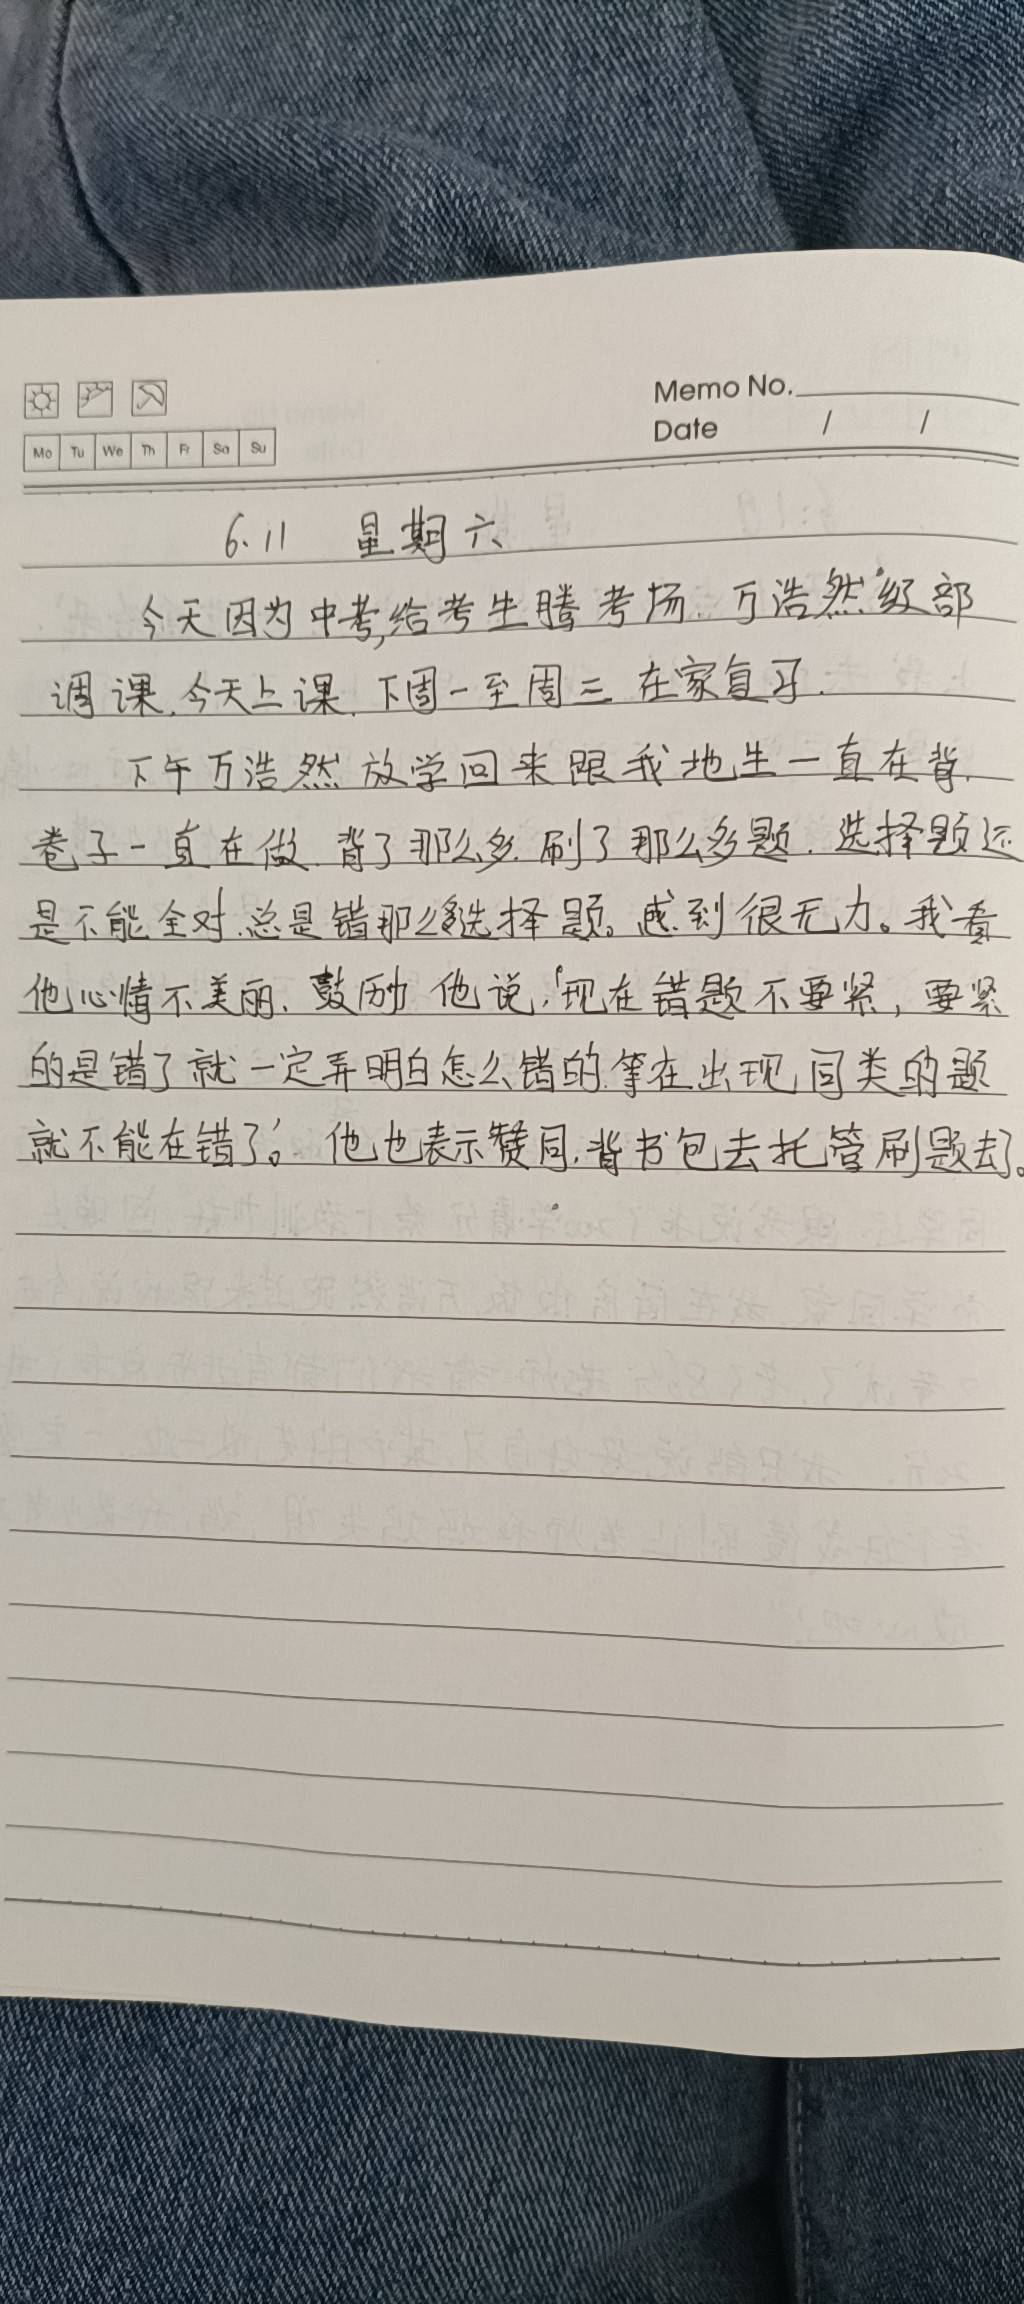 Memo No.
Date / /
Mo Tu We Th Fr Sa Su
6.11 星期六
今天因为中考,给考生腾考场.万浩然级部
调课.今天上课.下周一至周三在家复习.
下午万浩然放学回来跟我地生一直在背.
卷子一直在做.背了那么多.刷了那么多题.选择题还
是不能全对.总是错那么多选择题。感到很无力。我看
他心情不美丽.鼓励他说,“现在错题不要紧,要紧
的是错了就一定弄明白怎么错的.等在出现同类的题
就不能在错了”。他也表示赞同.背书包去托管刷题去了。